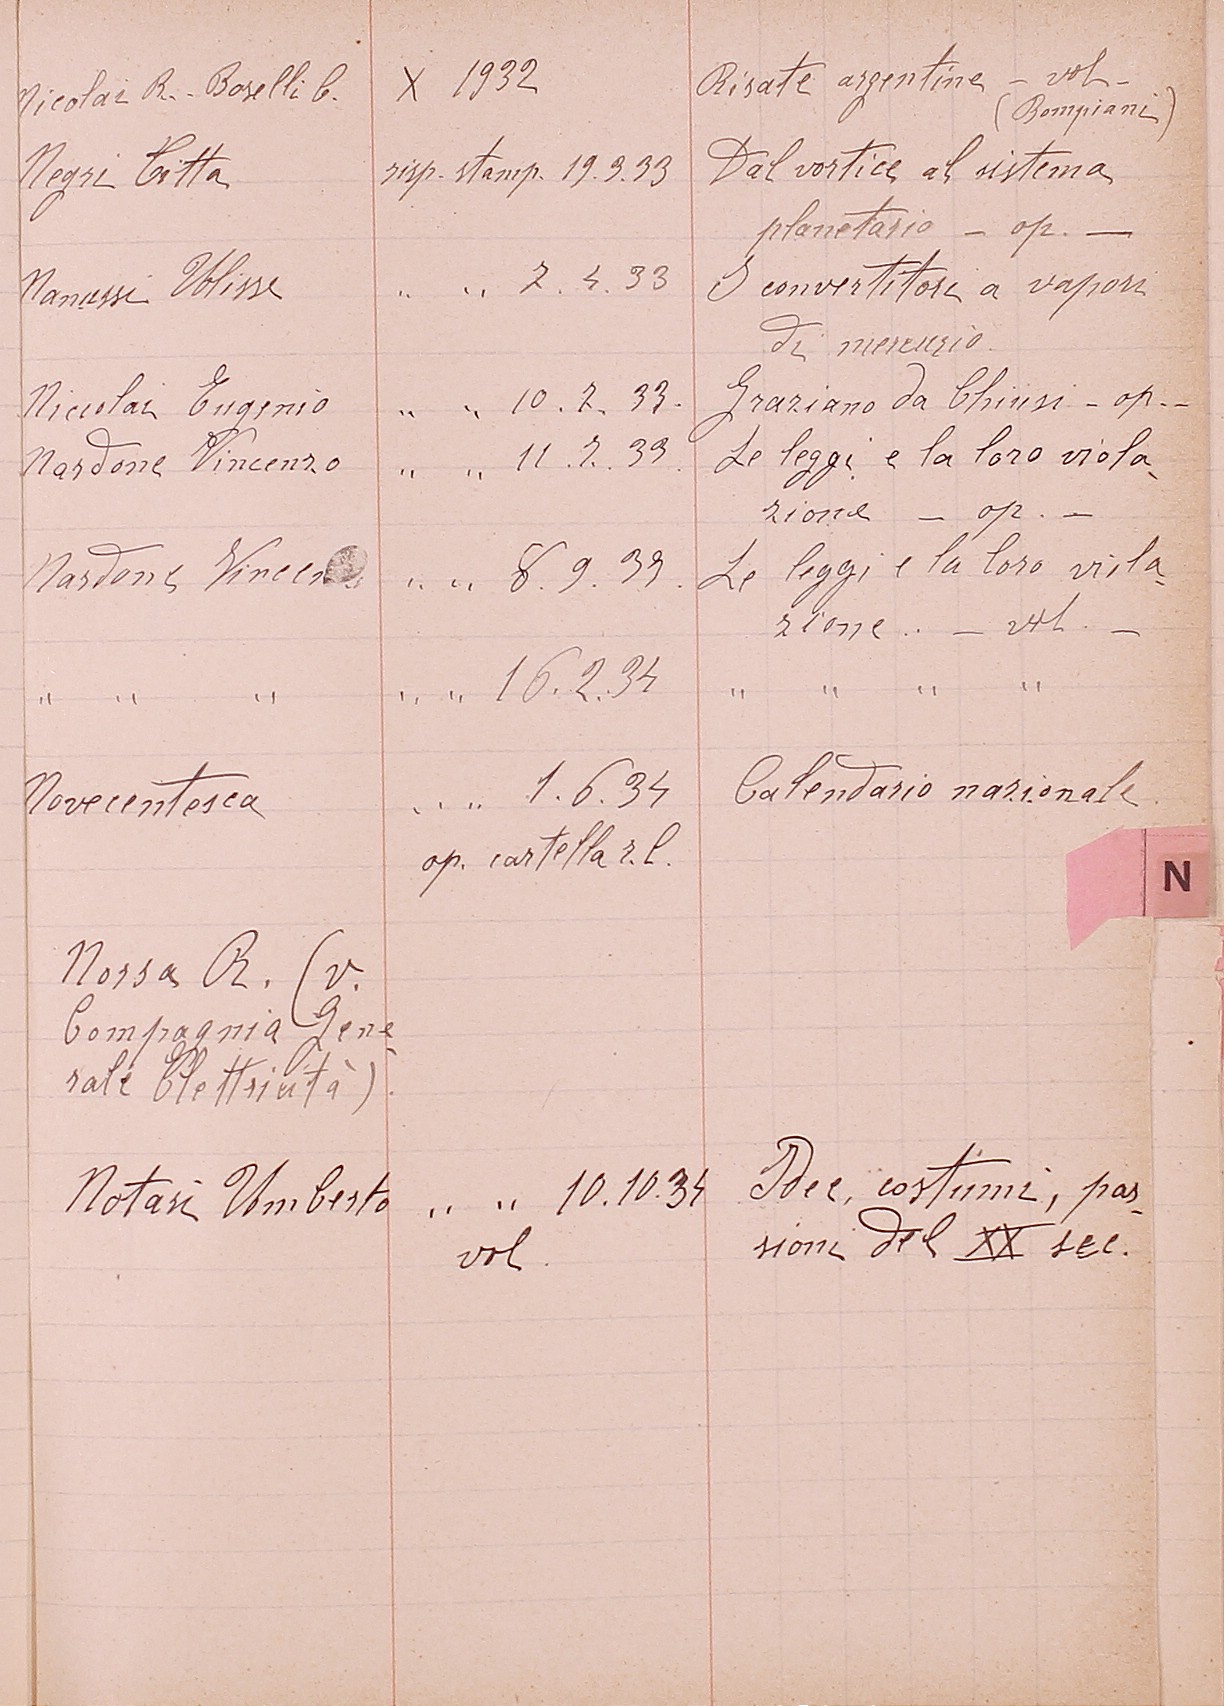 Nicolai R. - Boselli C. X 1932 Risate argentine - vol -
(Bompiani)
Negri Citta risp. stamp. 19.3.33 Dal vortice al sistema
planetario - op. -
Nanussi Ulisse " " 2.4.33 I convertitori a vapori
di mercurio.
Niccolai Eugenio " " 10.7.33. Graziano da Chiusi - op. -
Nardone Vincenzo " " 11.7.33. Le leggi e la loro viola-
zione - op. -
Nardone " " 8.9.33. Le leggi e la loro viola-
zione .. - vol. -
" " " " " 16.2.34 " " " "
Novecentesca " " 1.6.34 Calendario nazionale.
op. cartella r.l.
N
Nossa R. (v.
Compagnia Gene-
rale Elettricità).
Notari Umberto " " 10.10.34 Idee, costumi, pas-
vol. sioni del XX sec.